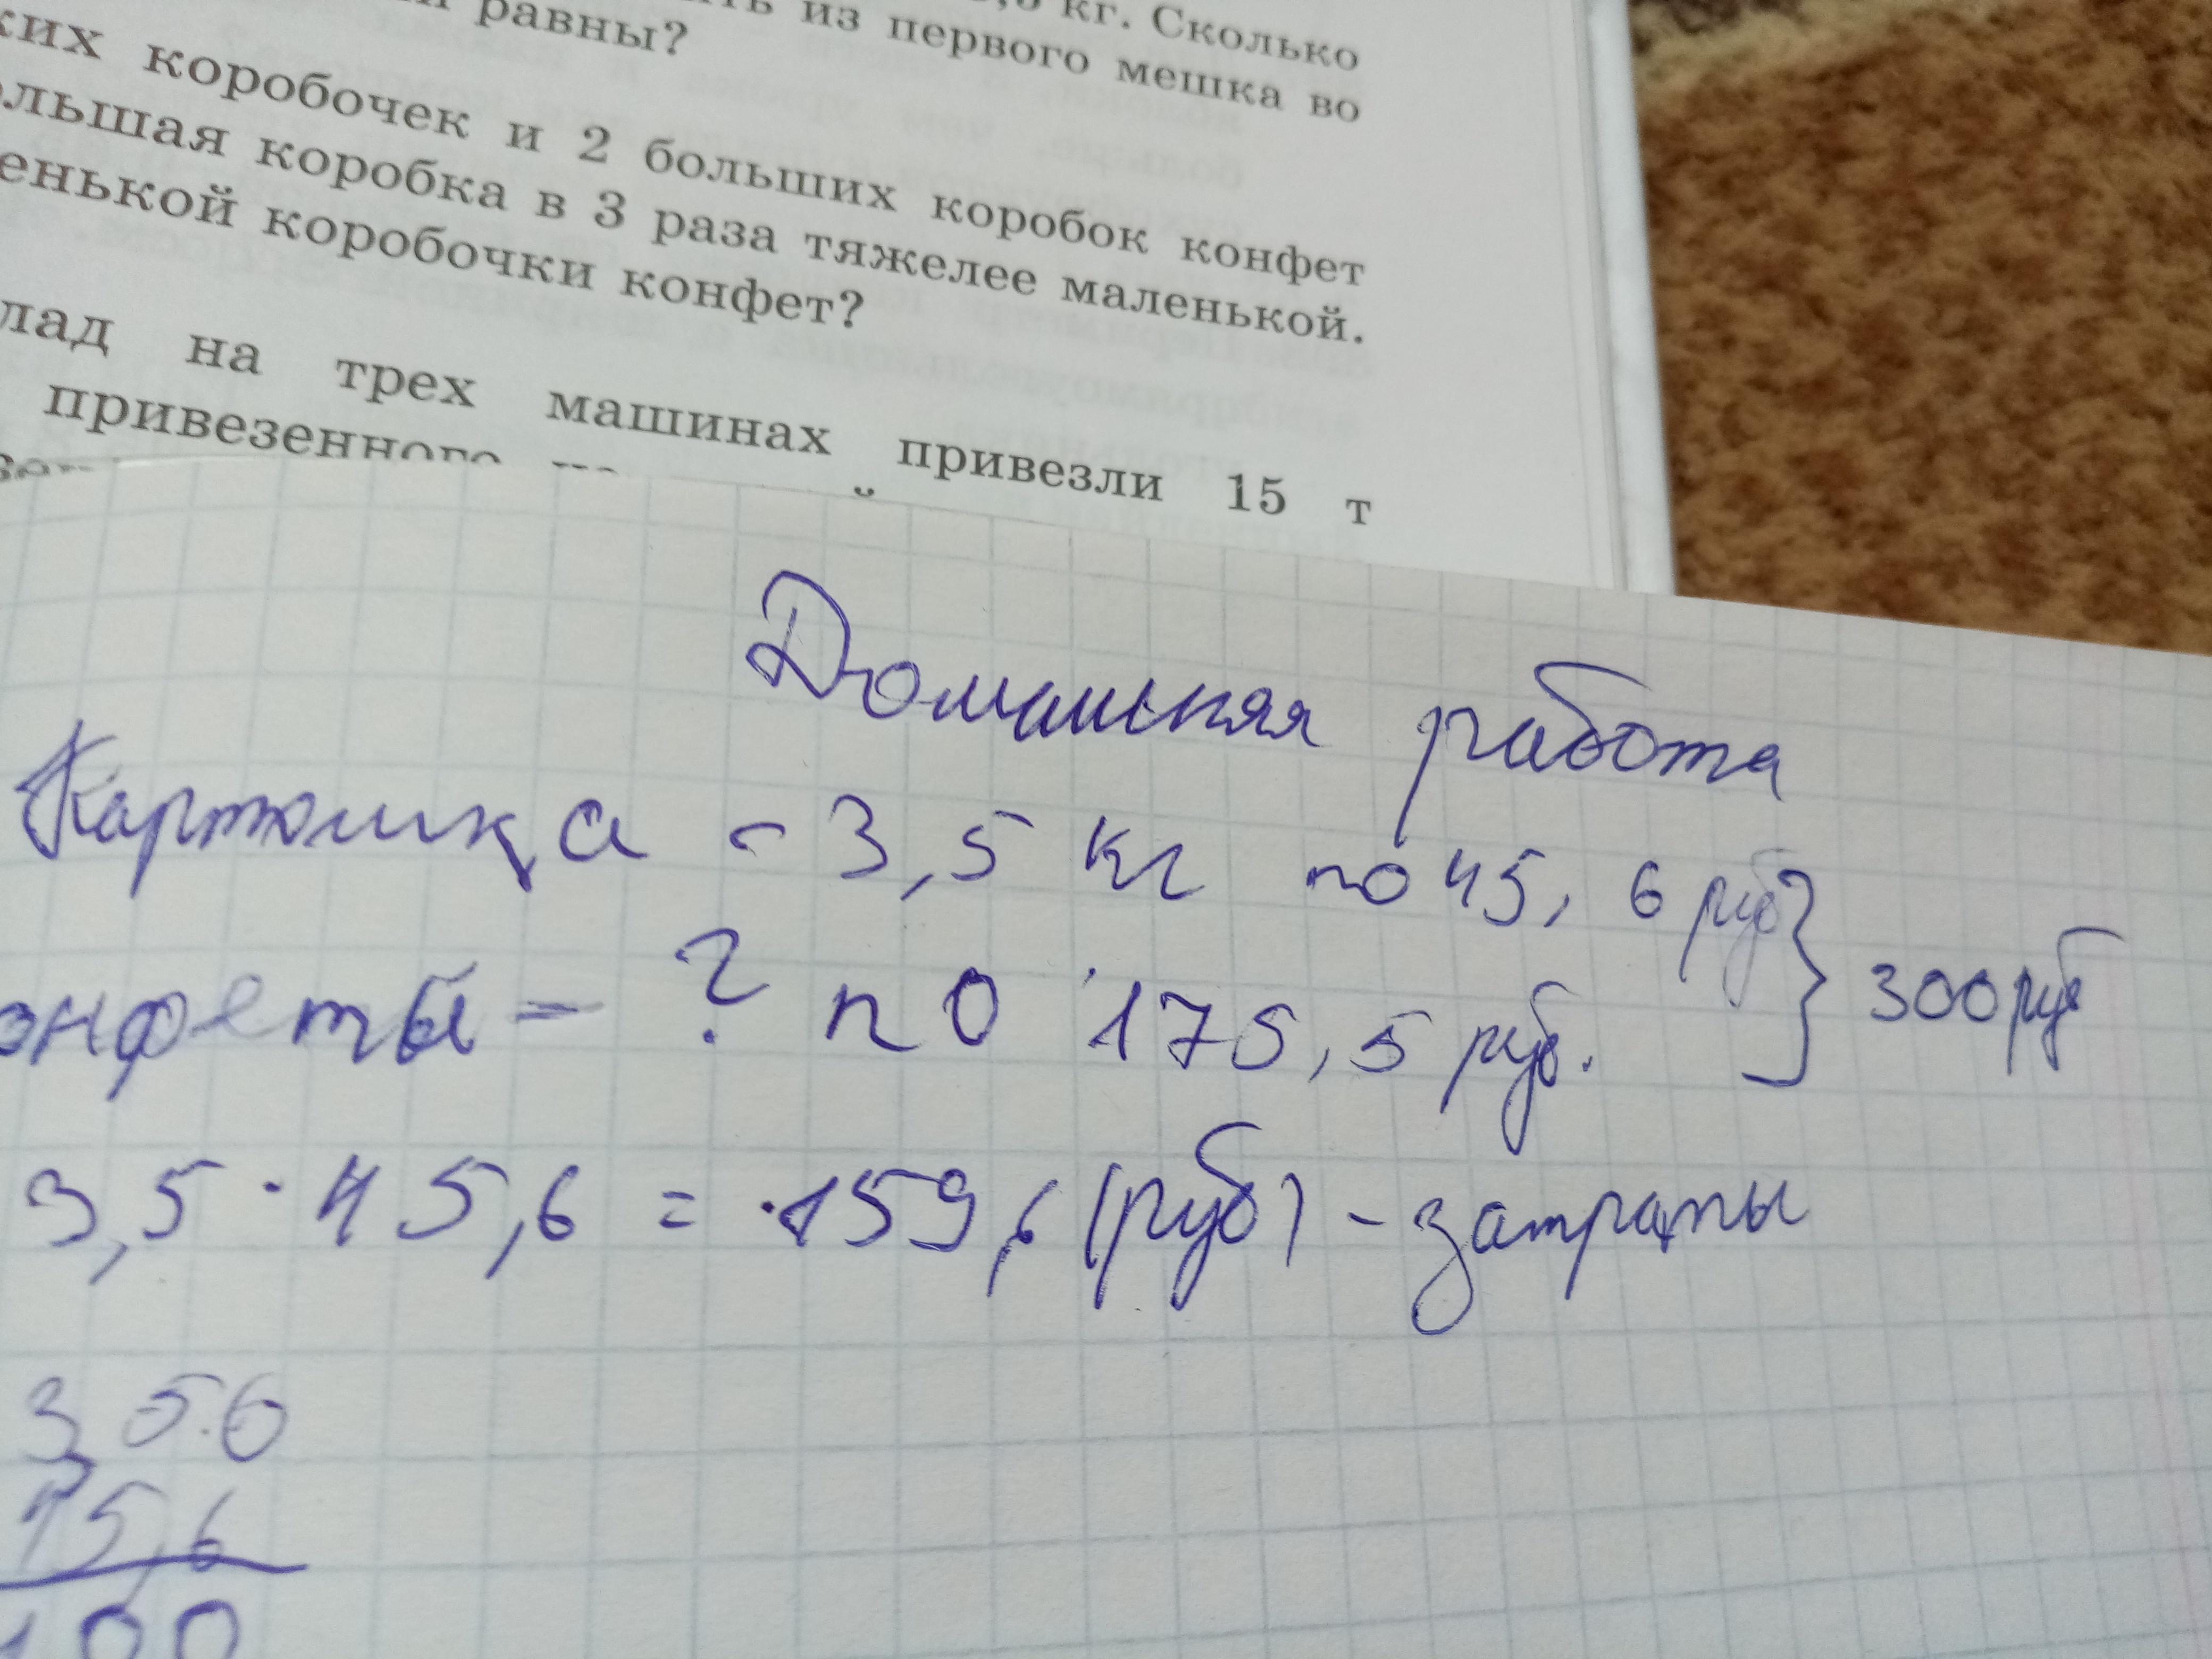 кг. Сколько
из первого мешка во
равны?
коробочек и 2 больших коробок конфет
коробка в 3 раза тяжелее маленькой.
коробочки конфет?
на трех машинах привезли 15 т
привезенного
Домашняя работа
Картошка - 3,5 кг по 45,6 руб } 300 руб
онфеты - ? по 175,5 руб.
3,5 · 45,6 = 159,6 (руб) - затраты